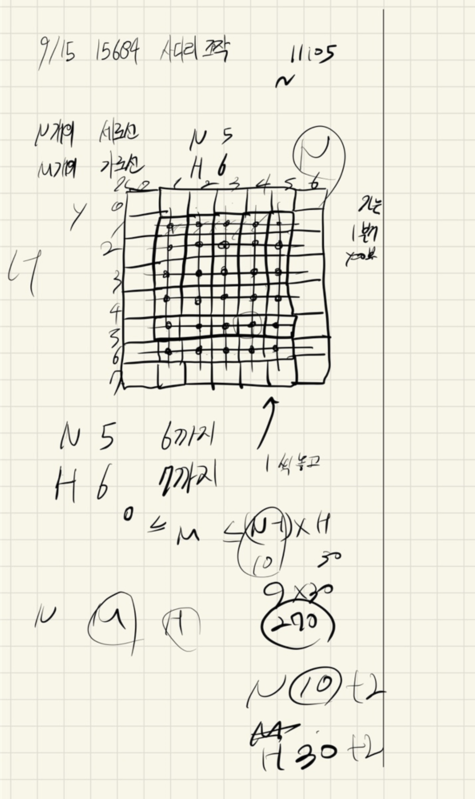 9/15 15684 사다리 조작
11:05
~
N개의 세로선 N 5
M개의 가로선 H 6
N
1 2 3 4 5 6
Y 0
1
2
3
4
5
6
7
N 5 6까지
H 6 7까지
1씩 놓고
0 ≤ M ≤ (N-1) X H
10 30
9 X 30
N M H 270
N 10 +2
H 30 +2